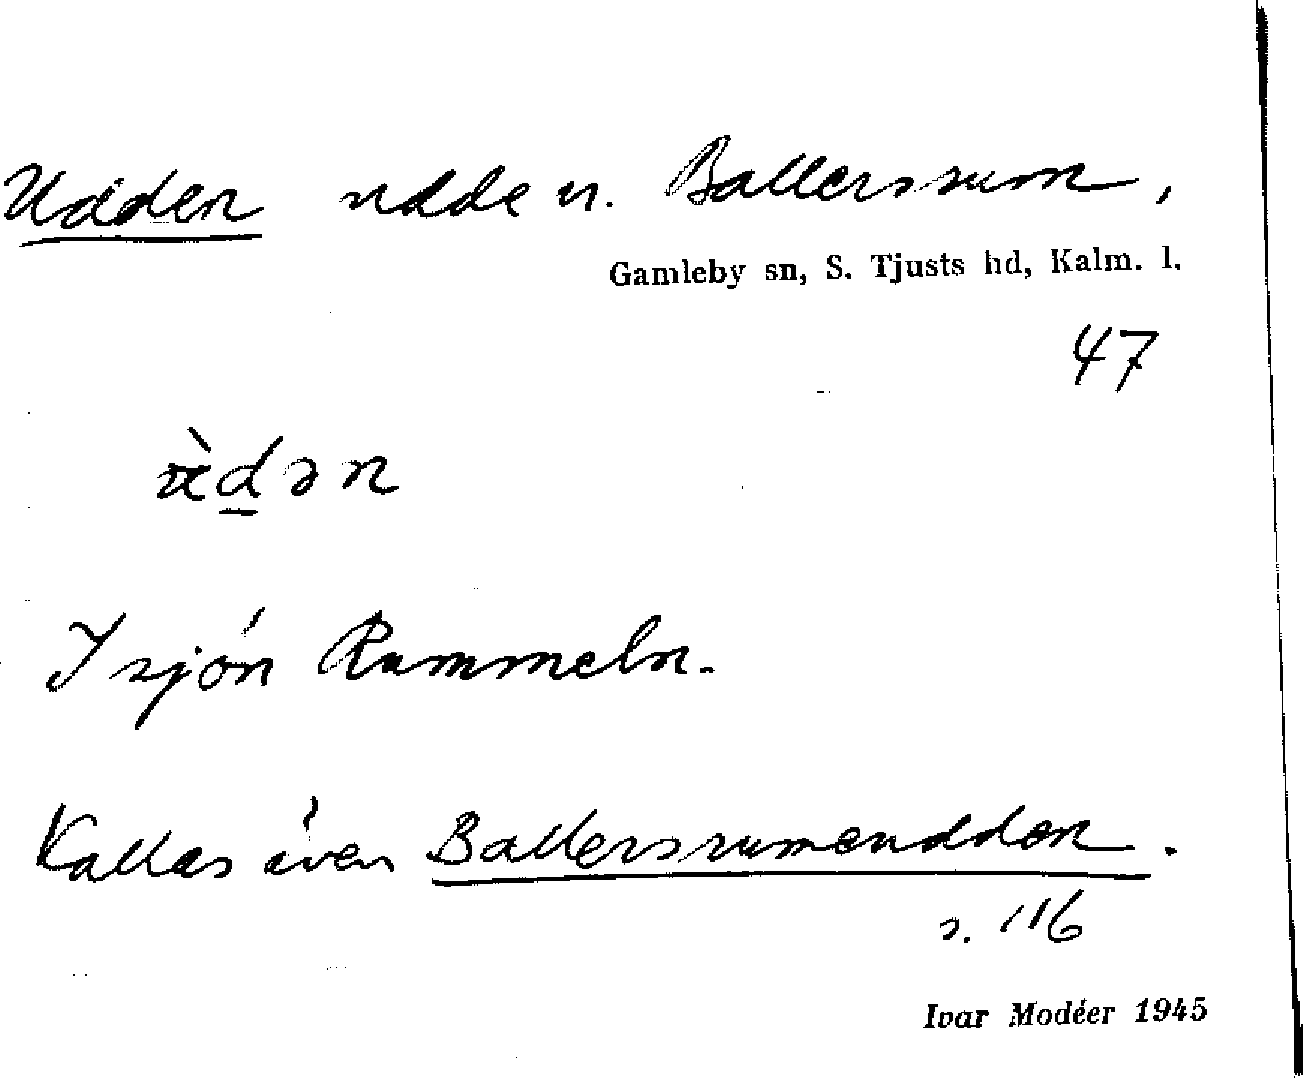 Udden udde n. Ballersrum,
Gamleby sn, S. Tjusts hd, Kalm. l.
47
I sjön Rummeln.
Kallas även Ballersrumsudden.
s. 116
Ivar Modéer 1945